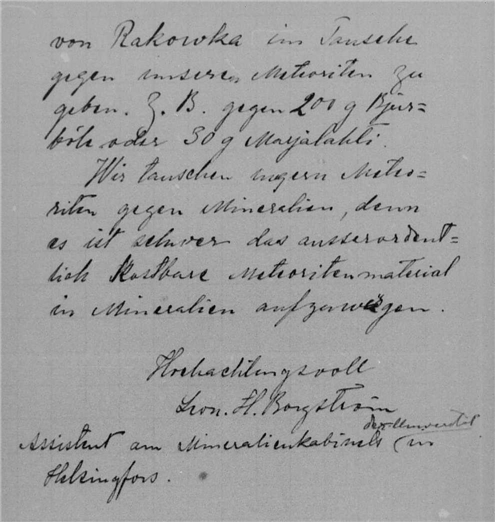 von Rakowka im Tausche
gegen unseren Meteoriten zu
geben. Z. B. gegen 200 g Bjur=
böle oder 30 g Marjalahti.
Wir tauschen ungern Meteo=
riten gegen Mineralien, denn
es ist schwer das ausserordent=
lich kostbare Meteoritenmaterial
in Mineralien aufzuwiegen.
Hochachtungsvoll
Leon. H. Borgström
der Universität
Assistent am Mineralienkabinett in
Helsingfors.